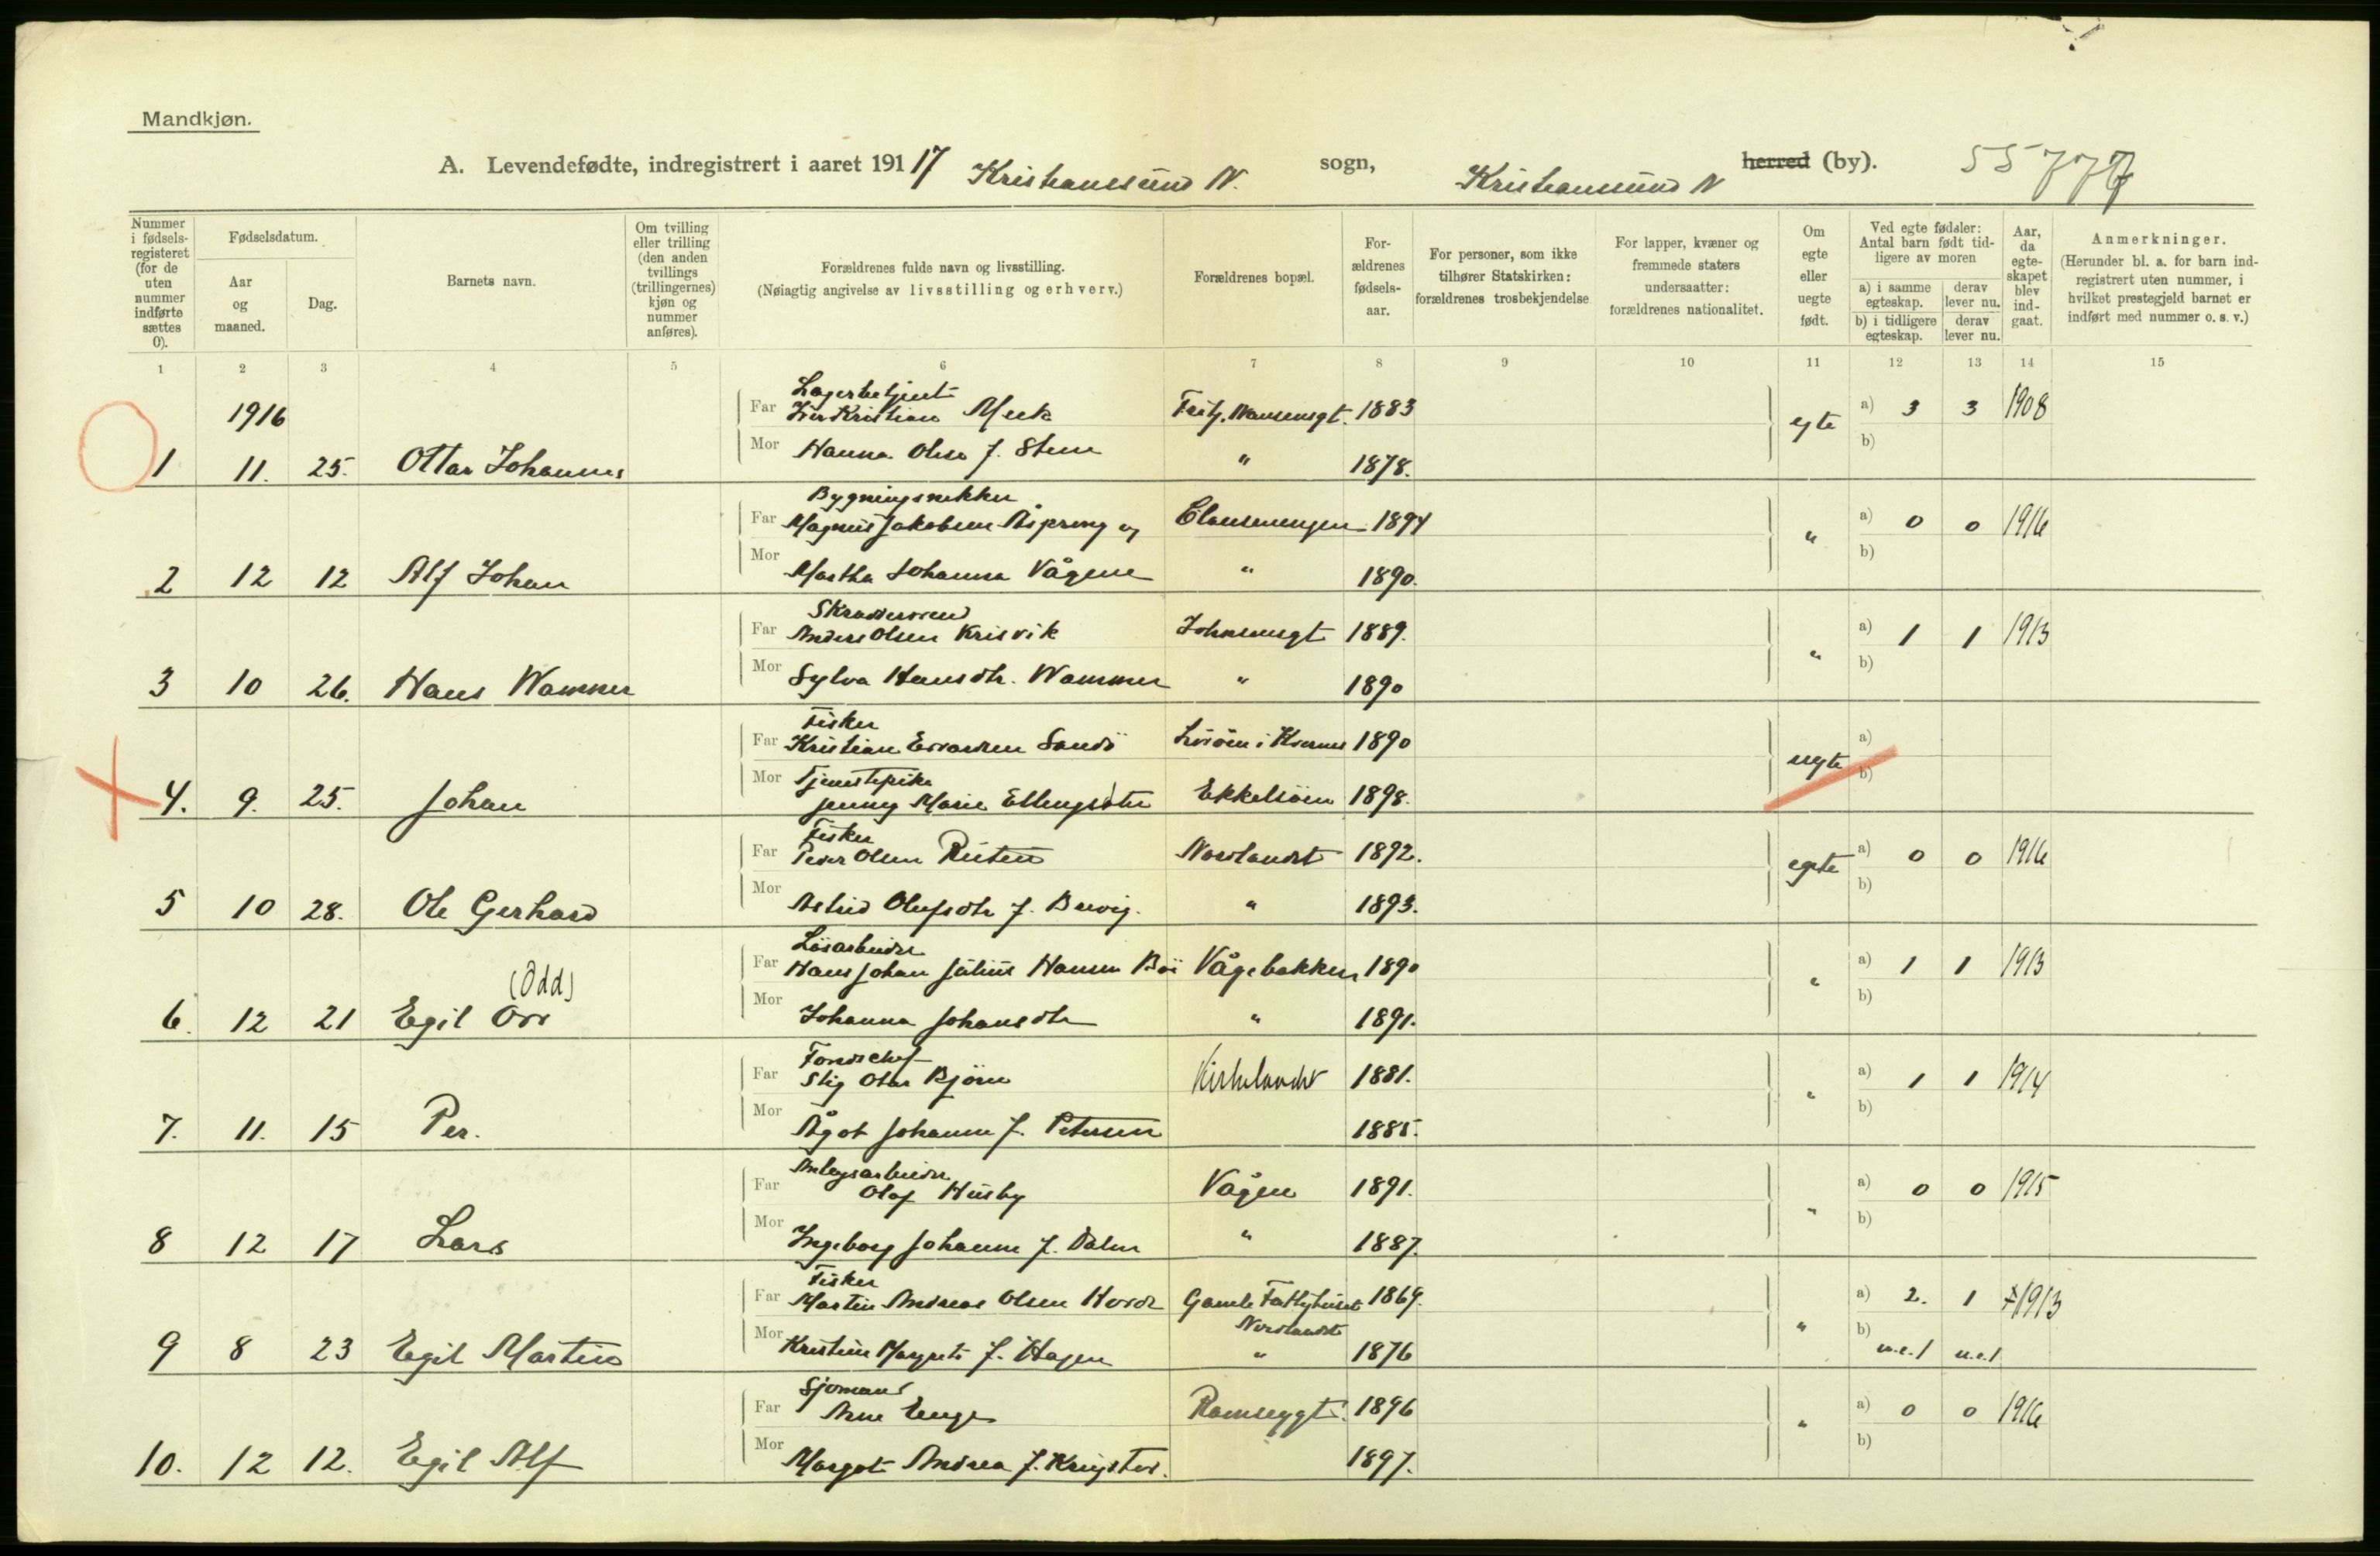 Mandkjøn.
A. Levendefødte, indregistrert i aaret 19117 Kristiansund N. sogn, Kristiansund N herred (by). 55777
Nummer i fødselsregisteret (for de uten nummer indførte sættes 0).
Fødselsdatum.
Aar og maaned.
Dag.
Barnets navn.
Om tvilling eller trilling (den anden tvillings (trillingernes) kjøn og nummer anføres).
Forældrenes fulde navn og livsstilling.
(Nøiagtig angivelse av livsstilling og erhverv.)
Forældrenes bopæl.
Forældrenes fødselsaar.
For personer, som ikke tilhører Statskirken: forældrenes trosbekjendelse
For lapper, kvæner og fremmede staters undersaatter: forældrenes nationalitet.
Om egte eller uegte født.
Ved egte fødsler: Antal barn født tidligere av moren
a) i samme egteskap. derav lever nu.
b) i tidligere egteskap. derav lever nu.
Aar, da egteskapet blev indgaat.
Anmerkninger.
(Herunder bl. a. for barn indregistrert uten nummer, i hvilket prestegjeld barnet er indført med nummer o. s. v.)
1 2 3 4 5 6 7 8 9 10 11 12 13 14 15
Lagerbetjent
1916 Far Kristian Meek 1883 egte a) 3 3 1908
1 11. 25. Ottar Johannes Mor Hanna Olsen f. Stene " 1878. b)
Bygningsnekker
Far Magnus Jakobsen Aspreng og Clausenengen 1894 " a) 0 0 1916
2 12 12 Alf Johan Mor Martha Johanna Vågene " 1890. b)
Skraddersvend
Far Anders Olsen Krisvik Johnsensgt 1889. " a) 1 1 1913
3 10 26. Hans Wammer Mor Sylva Hansdtr. Wammer " 1890 b)
Fisker
Far Kristian Edvardsen Sandö i Kvernes 1890 uegte a)
Tjenestepike
4. 9. 25. Johan Mor Jenny Marie Ellingsdtr Ekkelsöen 1898. b)
Fisker
Far Peder Olsen Nordlandet 1892. egte a) 0 0 1916
5 10 28. Ole Gerhard Mor Astrid Olufsdtr f. " 1893. b)
Lösarbeider
Far Hans Johan Julius Hansen Vågebakken 1890 " a) 1 1 1913
(Odd)
6. 12 21 Egil Odd Mor Johanna Johansdtr " 1891. b)
Far Stig Otar Björn Kirkelandet 1881. " a) 1 1 1914
7. 11. 15 Per. Mor Ågot Johanne f. Petersen 1885. b)
Anlegsarbeider
Far Olaf Husby Vågen 1891. " a) 0 0 1915
8 12 17 Lars Mor Ingeborg Johanne f. Dalen " 1887. b)
Fisker
Far Martin Andreas Olsen Gamle Fattighuset 1869. " a) 2. 1 1913
Nordlandet
9 8 23 Egil Martin Mor Kristine Margrete f. Hagen " 1876 b) u.e.1 u.e.1
Sjömand
Far Arne Enge 1896 " a) 0 0 1916
10. 12 12. Egil Alf Mor Margot Andrea f. 1897. b)